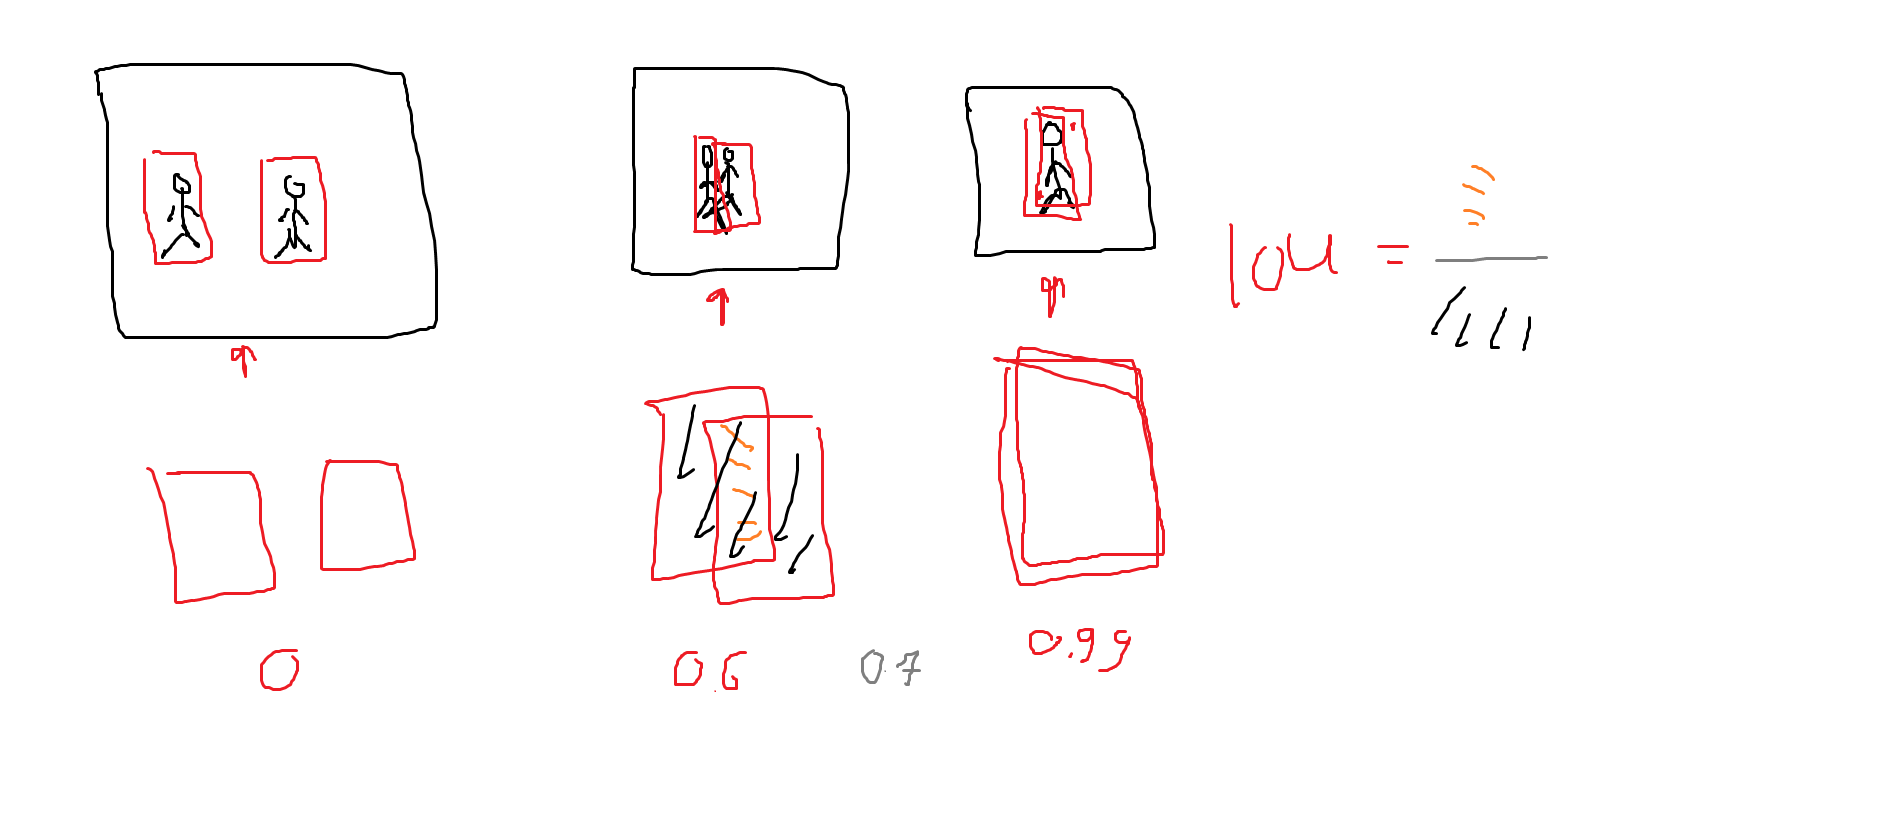 IOU =
0
0.6
0.7
0.99